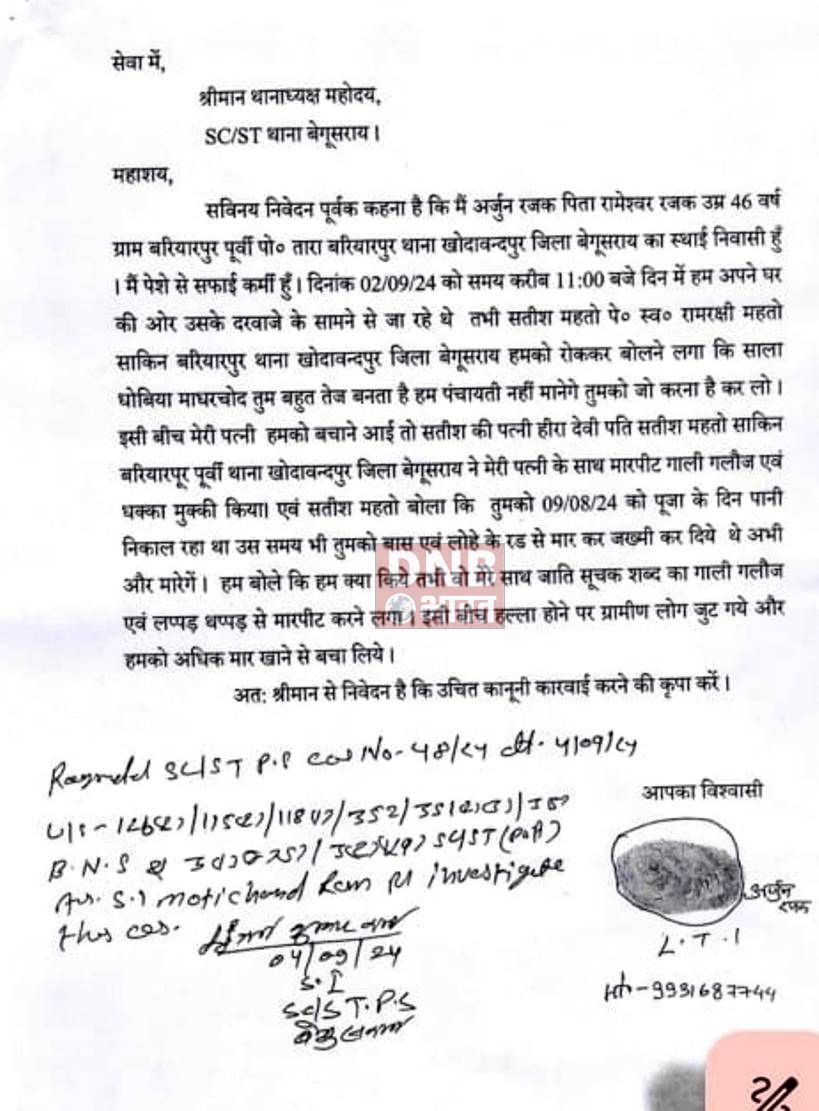 सेवा में,
श्रीमान थानाध्यक्ष महोदय,
SC/ST थाना बेगूसराय।
महाशय,
सविनय निवेदन पूर्वक कहना है कि मैं अर्जुन रजक पिता रामेश्वर रजक उम्र 46 वर्ष
ग्राम बरियारपुर पूर्वी पो० तारा बरियारपुर थाना खोदावन्दपुर जिला बेगूसराय का स्थाई निवासी हूँ
। मैं पेशे से सफाई कर्मी हूँ। दिनांक 02/09/24 को समय करीब 11:00 बजे दिन में हम अपने घर
की ओर उसके दरवाजे के सामने से जा रहे थे तभी सतीश महतो पे० स्व० रामरक्षी महतो
साकिन बरियारपुर थाना खोदावन्दपुर जिला बेगूसराय हमको रोककर बोलने लगा कि साला
धोबिया माघरचोद तुम बहुत तेज बनता है हम पंचायती नहीं मानेगे तुमको जो करना है कर लो।
इसी बीच मेरी पत्नी हमको बचाने आई तो सतीश की पत्नी हीरा देवी पति सतीश महतो साकिन
बरियारपूर पूर्वी थाना खोदावन्दपुर जिला बेगूसराय ने मेरी पत्नी के साथ मारपीट गाली गलौज एवं
धक्का मुक्की किया। एवं सतीश महतो बोला कि तुमको 09/08/24 को पूजा के दिन पानी
निकाल रहा था उस समय भी तुमको बास एवं लोहे के रड से मार कर जख्मी कर दिये थे अभी
और मारेगें। हम बोले कि हम क्या किये तभी वो मेरे साथ जाति सूचक शब्द का गाली गलौज
एवं लप्पड़ थप्पड़ से मारपीट करने लगा। इसी बीच हल्ला होने पर ग्रामीण लोग जुट गये और
हमको अधिक मार खाने से बचा लिये।
अत: श्रीमान से निवेदन है कि उचित कानूनी कारवाई करने की कृपा करें।
DNB
भारत
SC/ST P.S No-48/24 dt. 4/09/24
आपका विश्वासी
B.N.S
S.I motichand Ram investigate
this
अर्जुन
रजक
L.T.I
04/09/24
S.I
SC/ST.P.S
बेगुसराय
9931687744